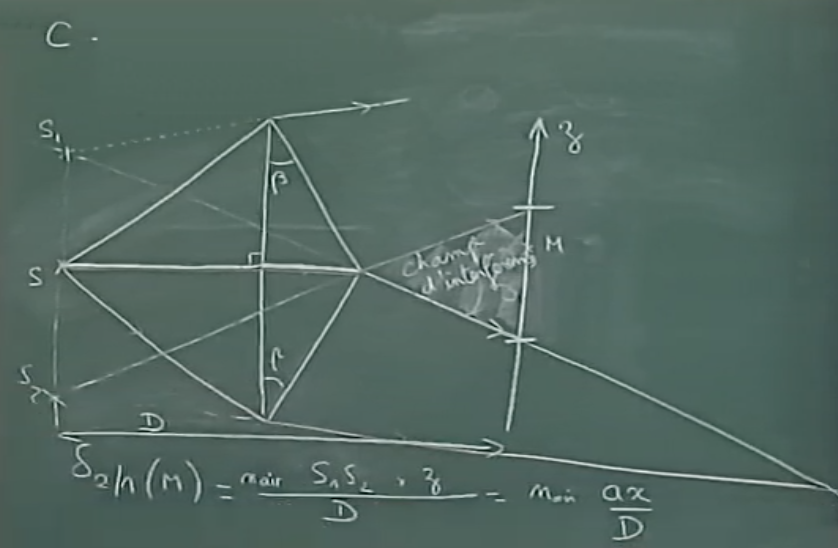 C.
S₁
z
β
M
S
champ
d'interférences
β
S₂
D
δ₂/₁(M) = nair S₁S₂ . z / D = nair ax / D